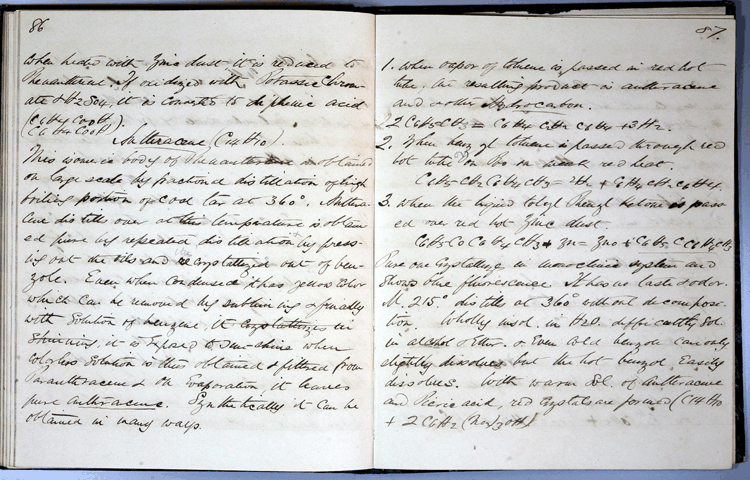 86
When heated with Zinc dust, it is reduced to
Phenanthrene. If oxidized with Potassic Chrom-
ate & H2SO4, it is converted to diphenic acid
(C6H4 COOH)
(C6H4 COOH).
Anthracene (C14H10).
This isomeric body of Phenanthrene is obtained
on large scale by fractional distillation of high
boiling portion of Coal tar at 360°. Anthra-
cene distills over at this temperature is obtain-
ed pure by repeated distillation by press-
ing out the oils and recrystallized out of ben-
zole. Even when condensed it has yellow color
which can be removed by subliming & finally
with solution of benzene, it crystallizes in
it is exposed to Sun-shine when
colorless solution is thus obtained & filtered from
Paranthracene & on evaporation it leaves
pure anthracene. Synthetically it can be
obtained in many ways.
87.
1. When vapor of toluene is passed in red hot
tube, the resulting product is anthracene
and other Hydrocarbon.
2 C6H5CH3 = C6H4 C2H2 C6H4 + 3H2.
2. When benzyl toluene is passed through red
hot tube
C6H5 CH2 C6H4 CH3 = 2H2 + C6H4 C2H2 C6H4.
3. When the liquid tolyl Phenyl ketone is pass-
ed over red hot Zinc dust
C6H5 CO C6H4 CH3 + Zn = ZnO +
Pure one crystallizes in monoclinic system and
shows blue fluorescence. It has no taste & odor.
M. 215° distills at 360° without decomposi-
tion. Wholly insol. in H2O. difficultly sol.
in alcohol & Ether. & Even cold benzol can only
slightly dissolves but the hot benzol easily
dissolves. With warm Sol. of Anthracene
and Picric acid, red crystals are formed (C14H10
+ 2 C6H2 (NO2)3OH)